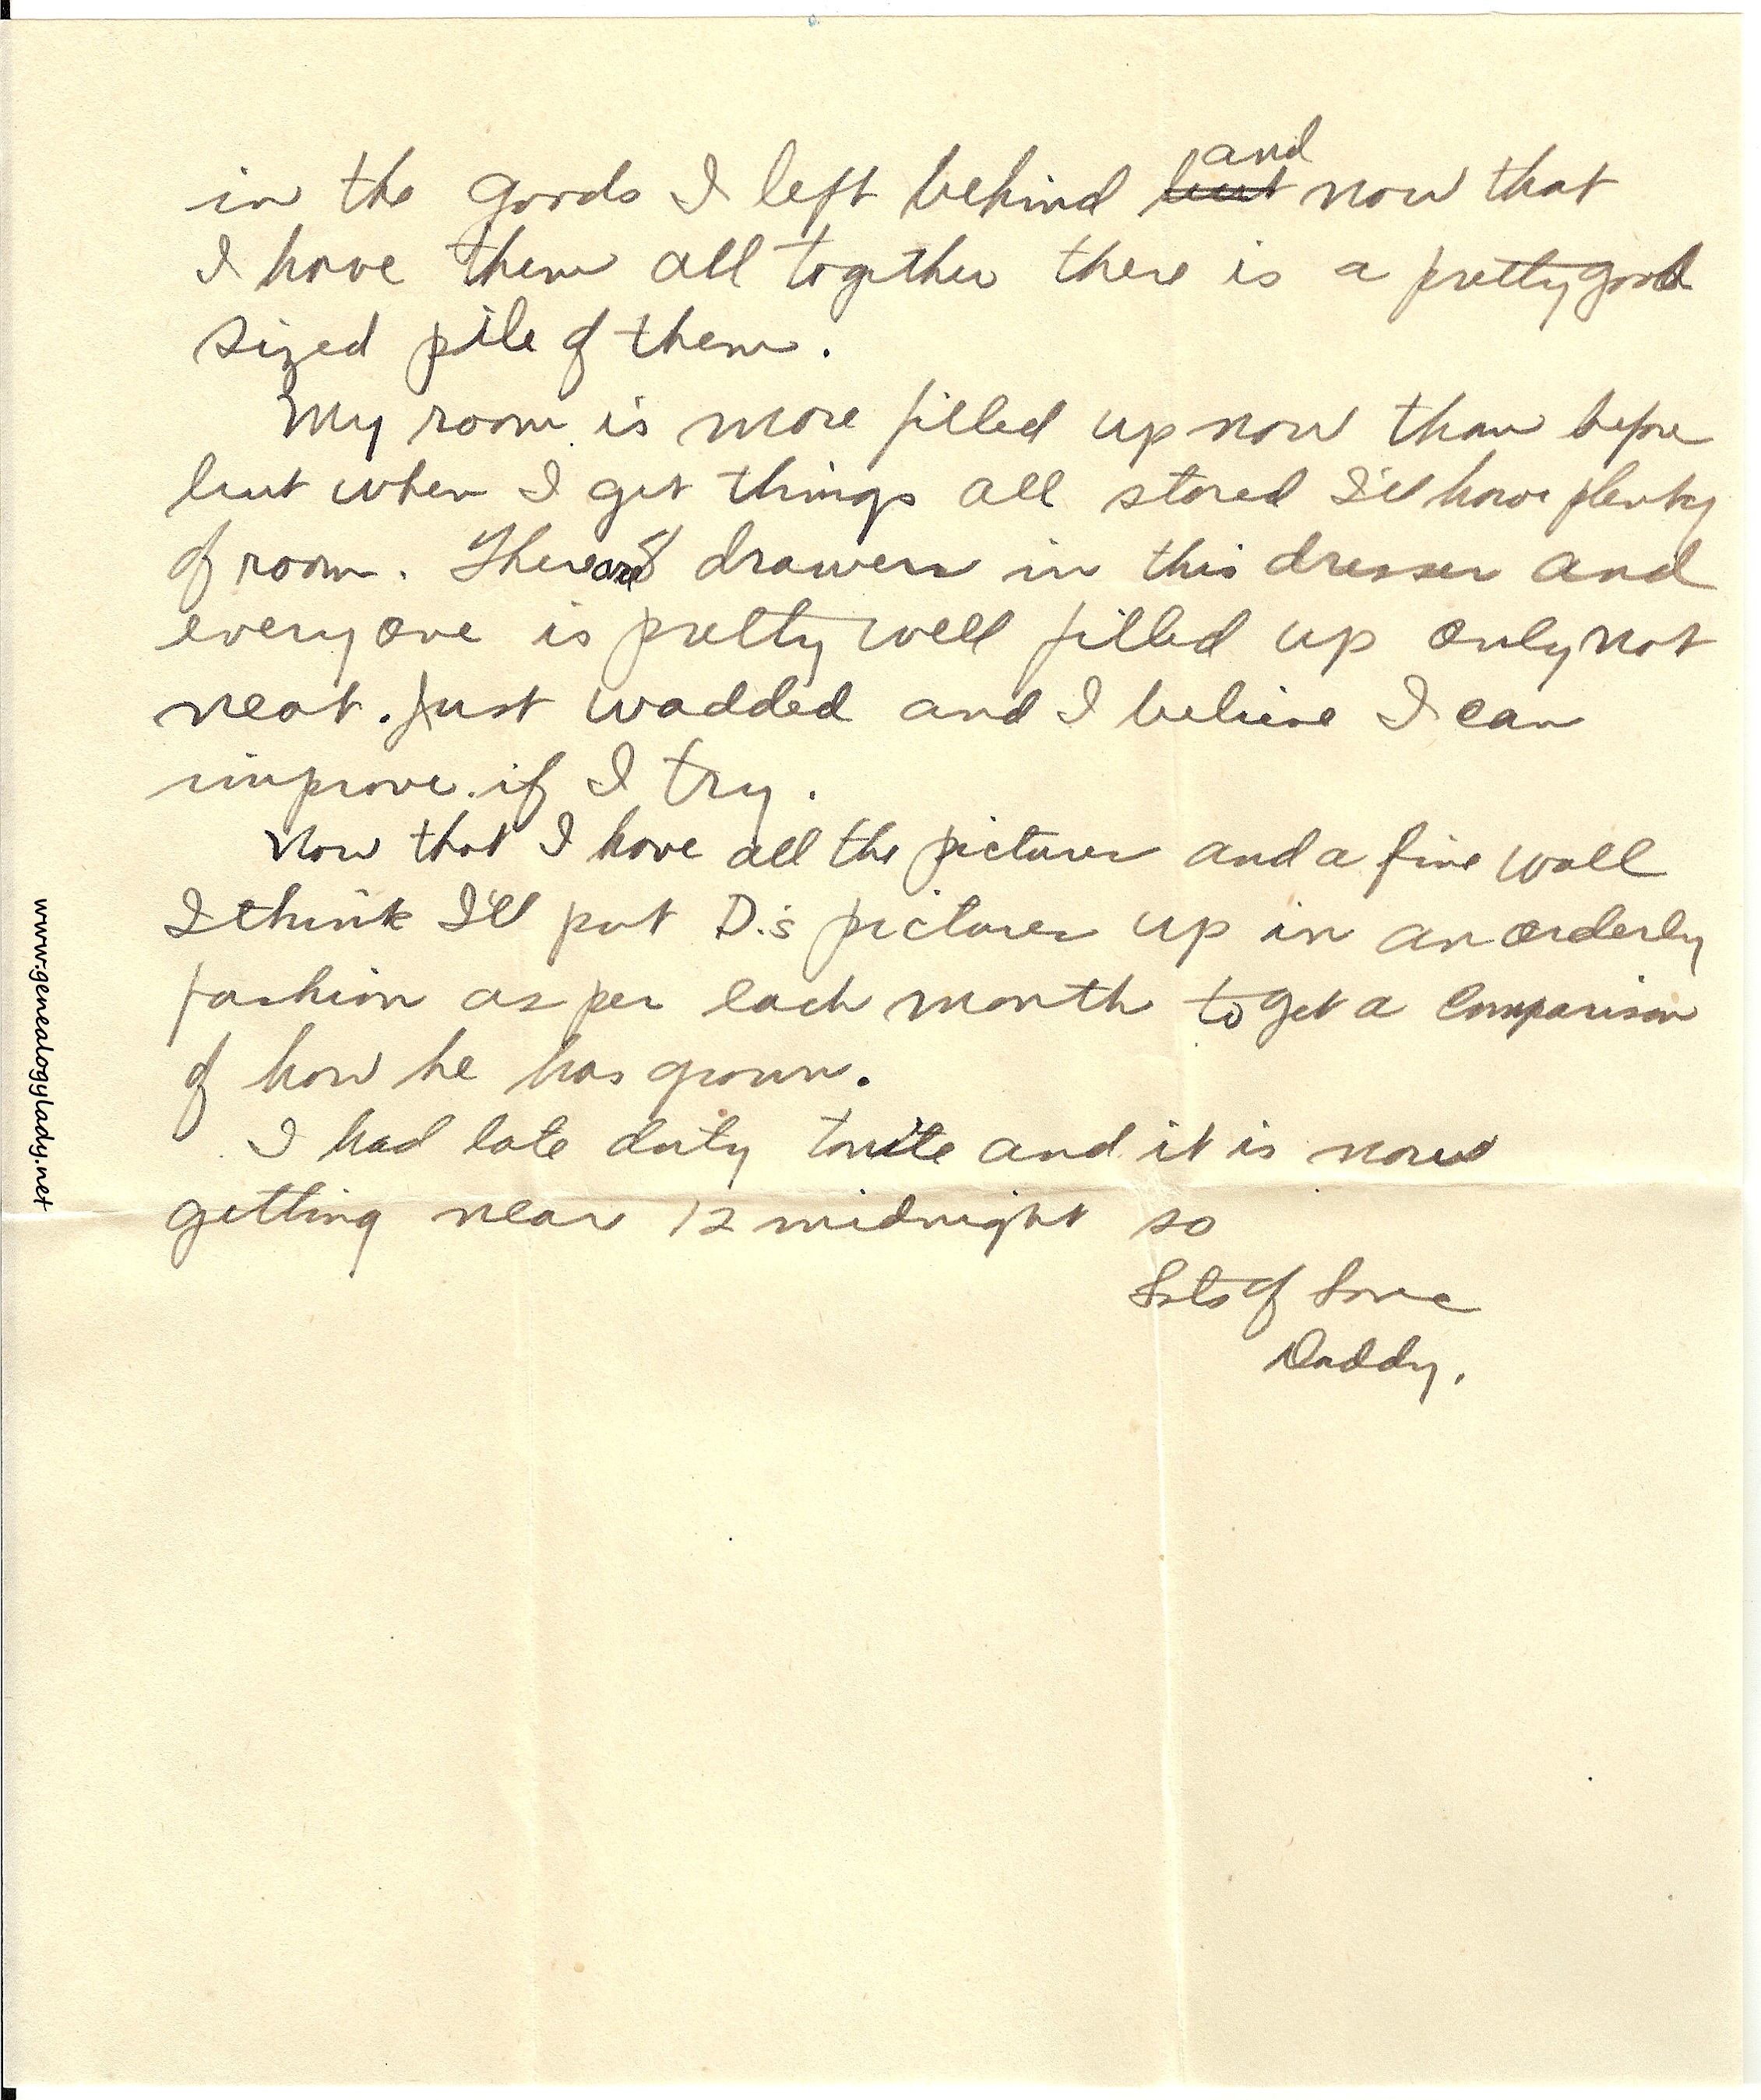 in the goods I left behind but and now that
I have them all together there is a pretty good
sized pile of them.
My room is more filled up now than before
but when I get things all stored I'll have plenty
of room. There are 8 drawers in this dresser and
everyone is pretty well filled up only not
neat. Just wadded and I believe I can
improve if I try.
Now that I have all the pictures and a fine wall
I think I'll put D.'s pictures up in an orderly
fashion as per each month to get a comparison
of how he has grown.
I had late duty tonite and it is now
getting near 12 midnight so
Lots of Love
Daddy.
www.genealogylady.net